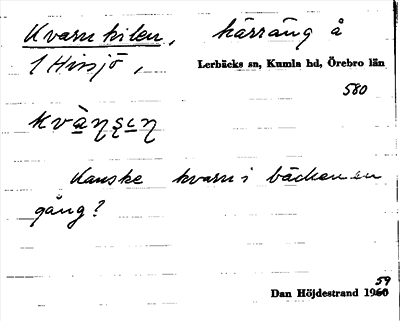 Kvarnkilen, kärräng å
1 Hissjö,
Lerbäcks sn, Kumla hd, Örebro län
580
Kanske kvarn i bäcken en
gång?
59
Dan Höjdestrand 1960